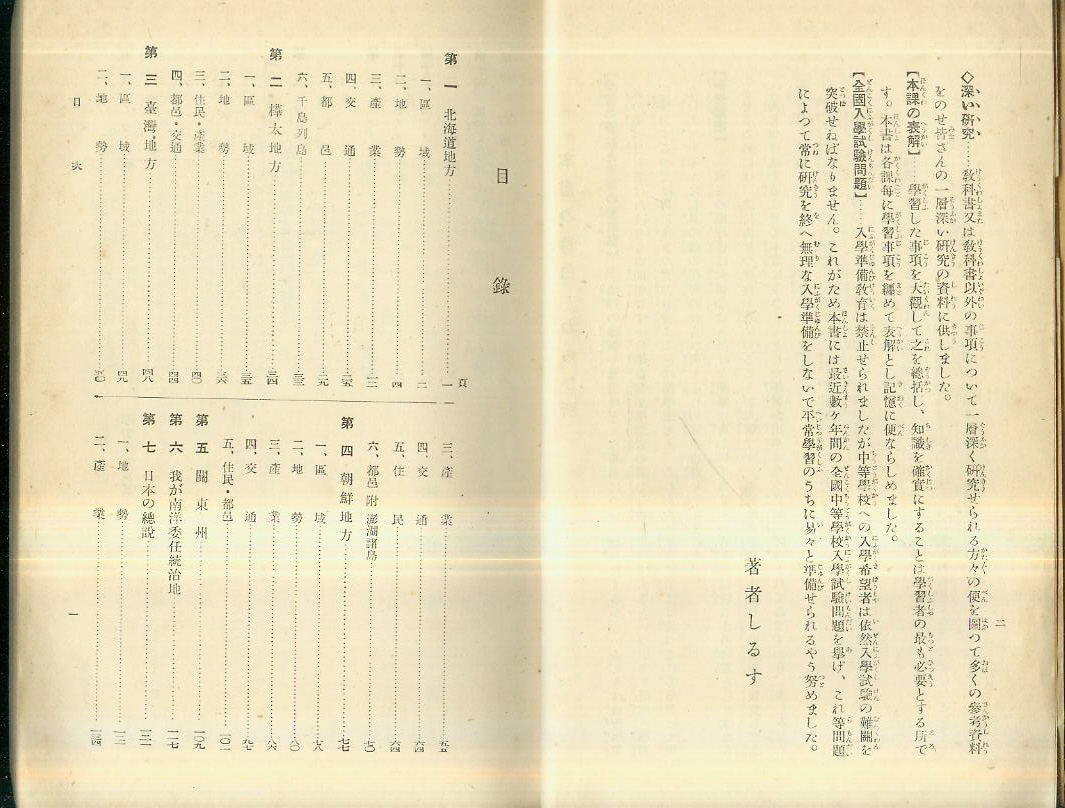 二
◇深い研究……敎科書又は敎科書以外の事項について一層深く研究せられる方々の便を圖つて多くの參考資料
をのせ皆さんの一層深い研究の資料に供しました。
【本課の表解】……學習した事項を大觀して之を總括し、知識を確實にすることは學習者の最も必要とする所で
す。本書は各課每に學習事項を纒めて表解とし記憶に便ならしめました。
【全國入學試驗問題】……入學準備敎育は禁止せられましたが中等學校への入學希望者は依然入學試驗の難關を
突破せねばなりません。これがため本書には最近數ヶ年間の全國中等學校入學試驗問題を擧げ、これ等問題
によつて常に研究を終へ無理な入學準備をしないで平常學習のうちに易々と準備せられるやう努めました。
著者しるす
目錄
頁
第一 北海道地方……一
一、區域……二
二、地勢……四
三、產業……一二
四、交通……二五
五、都邑……二九
六、千島列島……三三
第二 樺太地方……三四
一、區域……三五
二、地勢……三六
三、住民・產業……四〇
四、都邑・交通……四四
第三 臺灣地方……四八
一、區域……四九
二、地勢……五〇
三、產業……五五
四、交通……六四
五、住民……六四
六、都邑 附 澎湖諸島……七〇
第四 朝鮮地方……七七
一、區域……七八
二、地勢……八〇
三、產業……八六
四、交通……九七
五、住民・都邑……一〇一
第五 關東州……一〇九
第六 我が南洋委任統治地……一一七
第七 日本の總說……一二一
一、地勢……一二二
二、產業……一三四
目次
一